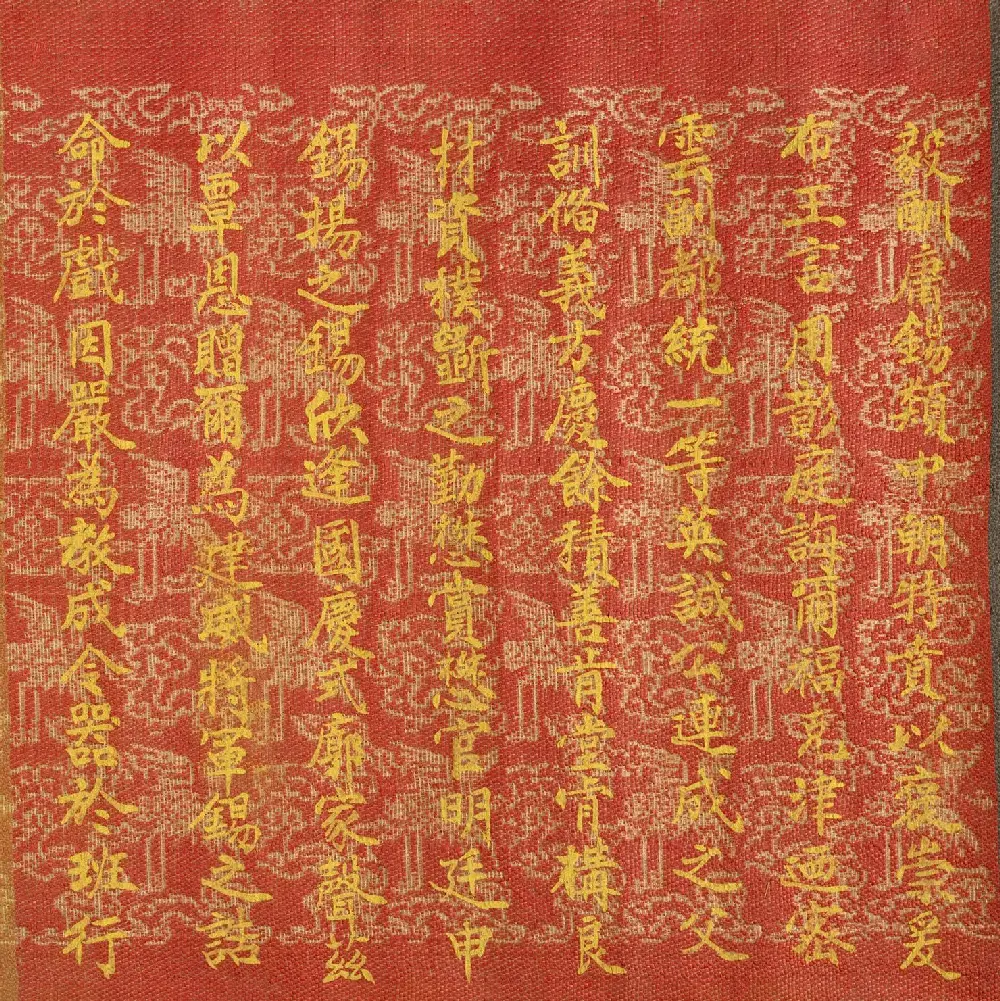 毅酬庸錫類中朝特賁以褒崇爰
布王言用彰庭誨爾福克津迺密
雲副都統一等英誠公連成之父
訓脩義方慶餘積善肯堂肯構良
材資樸斲之勤懋賞懋官明廷申
錫揚之錫欣逢國慶式廓家聲茲
以覃恩贈爾為建威將軍錫之誥
命於戲因嚴為教成令器於班行